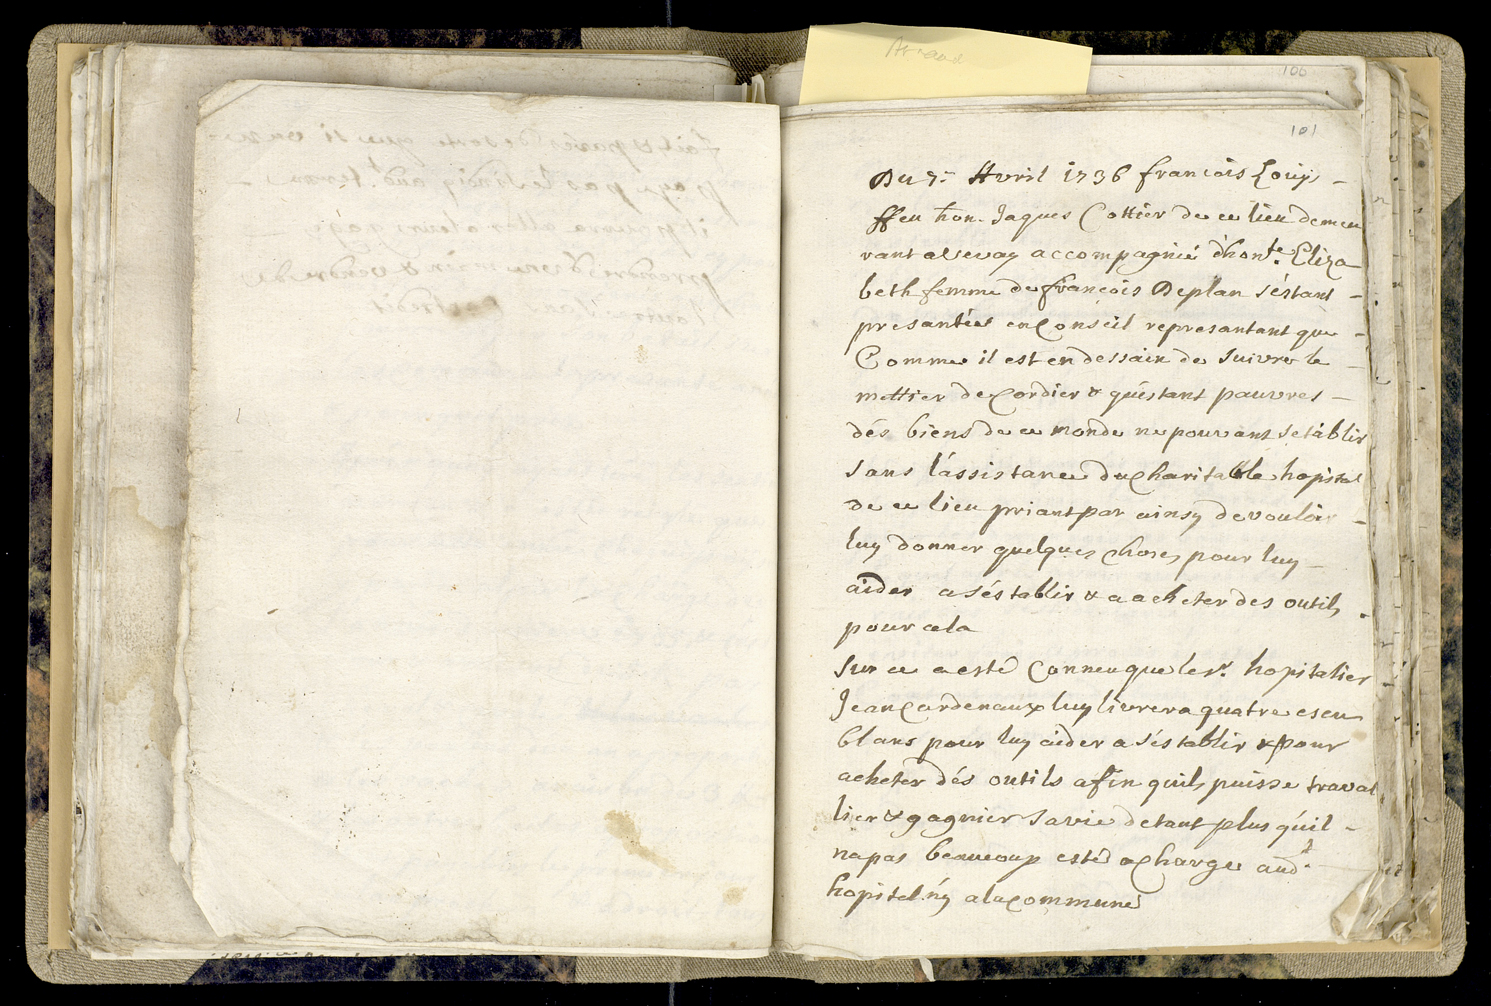 Arraud
100
101
Du 7e Avril 1736 francois Louÿs
ffeu hon. Jaques Cottier de ce lieu demeu
rant a Vevay accompagnié d'honte. Eliza
beth femme de francois Deplan s'éstant
presantéé en Conseil represantant que
Comme il est en dessain de suivre le
mettier de Cordier & qu'éstant pauvres
dés biens de ce monde ne pouvant sétáblir
sans l'ássistance du Charitable hopital
de ce lieu priant par ainsy de vouloir
luy donner quelques choses pour luy
aider a séstablir & a acheter des outils
pour cela
Sur ce a esté Conneu que le sr. hopitalier
Jean Cardenaux luy livrera quatre escu
blans pour luy aider a séstablir & pour
acheter dés outils afin quil puisse traval
lier & gagnier sa vie detant plus qúil
na pas beaucoup esté a Charge audt.
hopital ny a la Commune